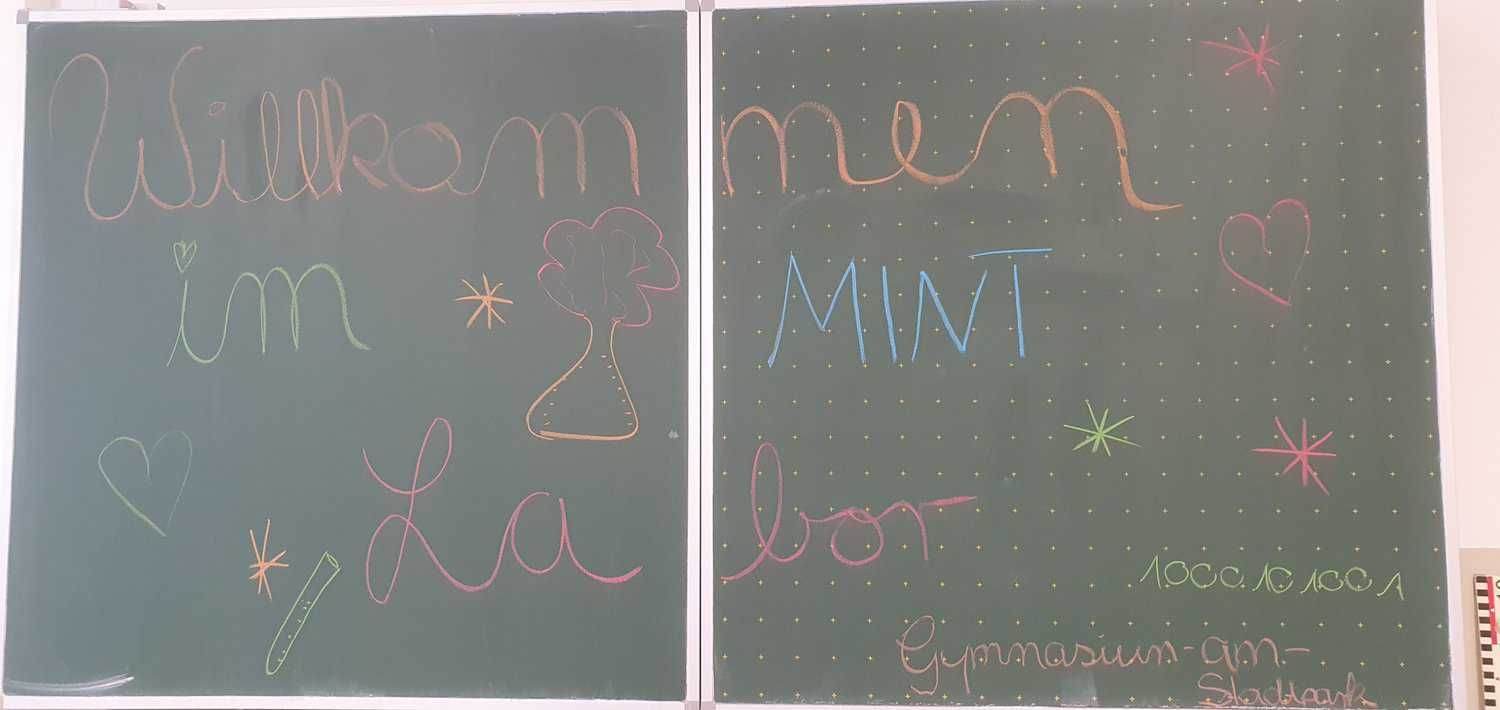 Willkommen
im MINT
Labor
10001010001
Gymnasium-am-
Stadtpark